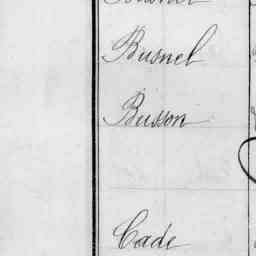 Busnel
Busson
Cade